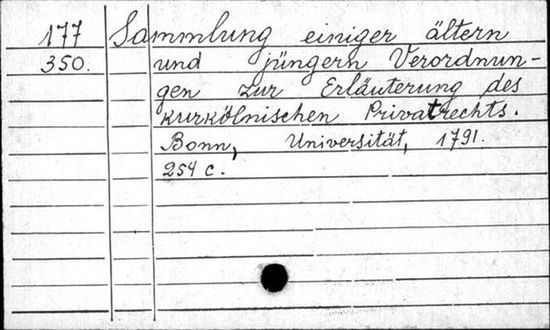 177 Sammlung einiger ältern
350. und jüngern Verordnun-
gen zur Erläuterung des
kurkölnischen Privatrechts.
Bonn, Universität, 1791.
254 c.